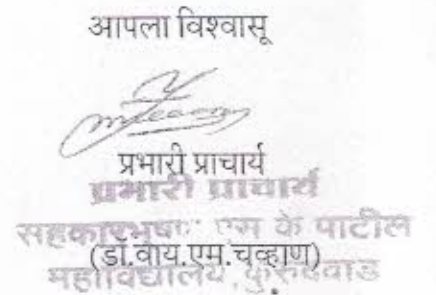 आपला विश्वासू
प्रभारी प्राचार्य
प्रभारी प्राचार्य
सहकारभूषण एस के पाटील
(डॉ.वाय.एम.चव्हाण)
महाविद्यालय, कुरुंदवाड